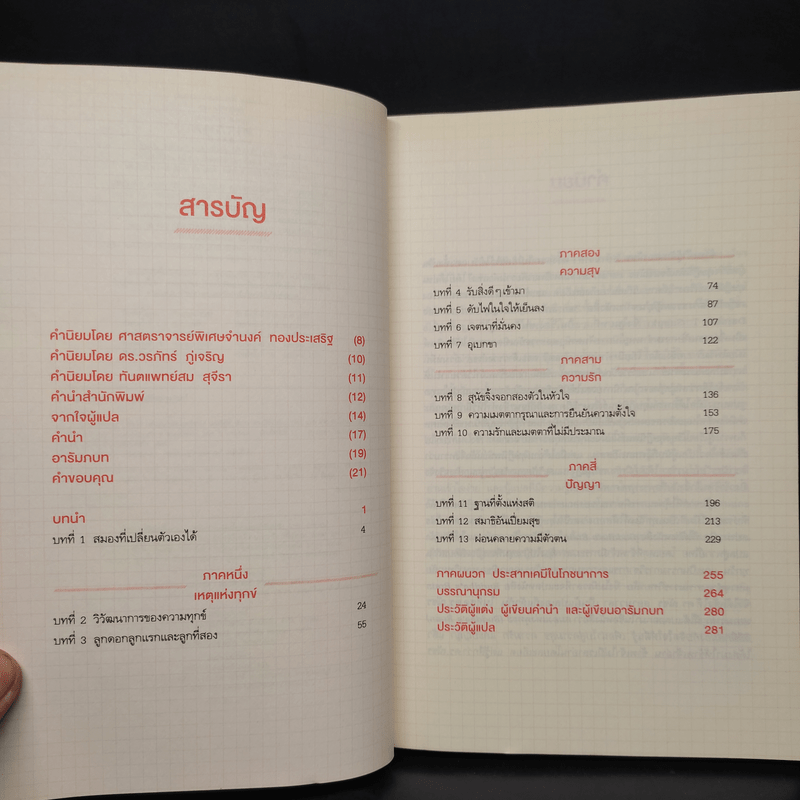 สารบัญ
คำนิยมโดย ศาสตราจารย์พิเศษจำนงค์ ทองประเสริฐ (8)
คำนิยมโดย ดร.วรภัทร์ ภู่เจริญ (10)
คำนิยมโดย ทันตแพทย์สม สุจีรา (11)
คำนำสำนักพิมพ์ (12)
จากใจผู้แปล (14)
คำนำ (17)
อารัมภบท (19)
คำขอบคุณ (21)
บทนำ 1
บทที่ 1 สมองที่เปลี่ยนตัวเองได้ 4
ภาคหนึ่ง
เหตุแห่งทุกข์
บทที่ 2 วิวัฒนาการของความทุกข์ 24
บทที่ 3 ลูกดอกลูกแรกและลูกที่สอง 55
ภาคสอง
ความสุข
บทที่ 4 รับสิ่งดีๆ เข้ามา 74
บทที่ 5 ดับไฟในใจให้เย็นลง 87
บทที่ 6 เจตนาที่มั่นคง 107
บทที่ 7 อุเบกขา 122
ภาคสาม
ความรัก
บทที่ 8 สุนัขจิ้งจอกสองตัวในหัวใจ 136
บทที่ 9 ความเมตตากรุณาและการยืนยันความตั้งใจ 153
บทที่ 10 ความรักและเมตตาที่ไม่มีประมาณ 175
ภาคสี่
ปัญญา
บทที่ 11 ฐานที่ตั้งแห่งสติ 196
บทที่ 12 สมาธิอันเปี่ยมสุข 213
บทที่ 13 ผ่อนคลายความมีตัวตน 229
ภาคผนวก ประสาทเคมีในโภชนาการ 255
บรรณานุกรม 264
ประวัติผู้แต่ง ผู้เขียนคำนำ และผู้เขียนอารัมภบท 280
ประวัติผู้แปล 281